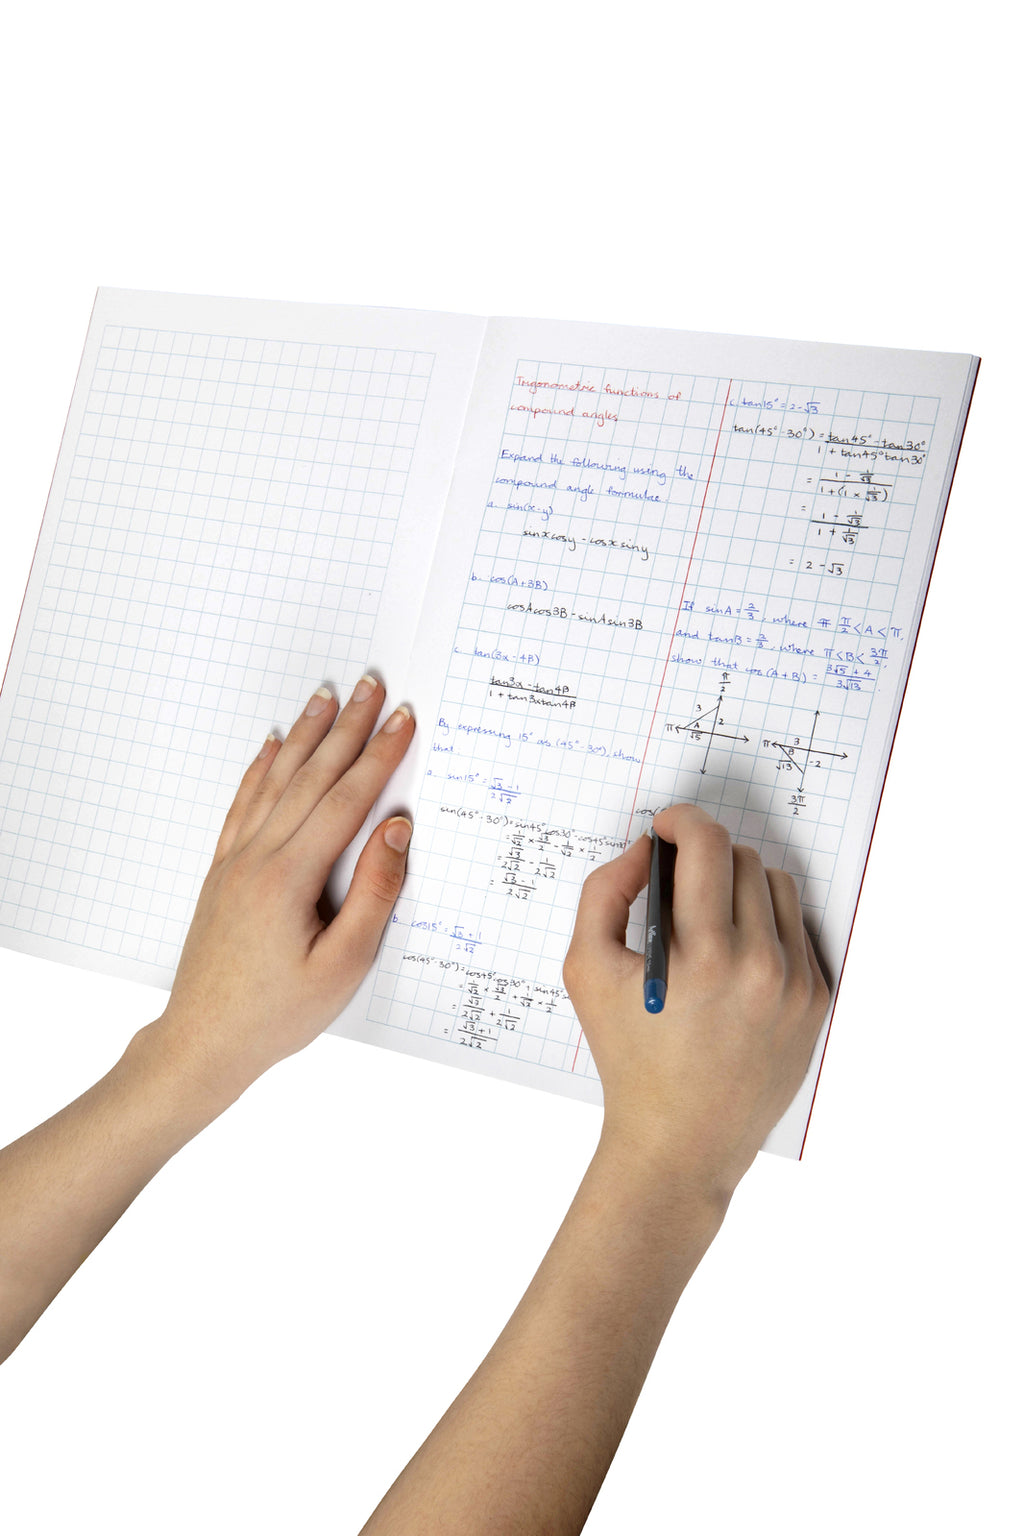 Trigonometric functions of
compound angles
Expand the following using the
compound angle formulae
a. sin(x-y)
sinxcosy - cosxsiny
b. cos(A+3B)
cosAcos3B - sinAsin3B
c. tan(3x - 4B)
tan3x - tan4B
1 + tan3xtan4B
By expressing 15° as (45° - 30°), show
that:
a. sin15° = √3 - 1
2√2
sin(45° - 30°) = sin45°cos30° - cos45°sin30°
= 1/√2 × √3/2 - 1/√2 × 1/2
= √3/2√2 - 1/2√2
= √3 - 1
2√2
b. cos15° = √3 + 1
2√2
cos(45° - 30°) = cos45°cos30° + sin45°s
= 1/√2 × √3/2 + 1/√2 × 1/2
= √3/2√2 + 1/2√2
= √3 + 1
2√2
c. tan15° = 2 - √3
tan(45° - 30°) = tan45° - tan30°
1 + tan45°tan30°
= 1 - 1/√3
1 + (1 × 1/√3)
= 1 - 1/√3
1 + 1/√3
= 2 - √3
If sinA = 2/3, where π/2 < A < π,
and tanB = 2/3, where π < B < 3π/2,
show that cos(A + B) = 3√5 + 4
3√13.
π/2
3
2
π
A
√5
π
3
B
√13
-2
3π/2
cos(